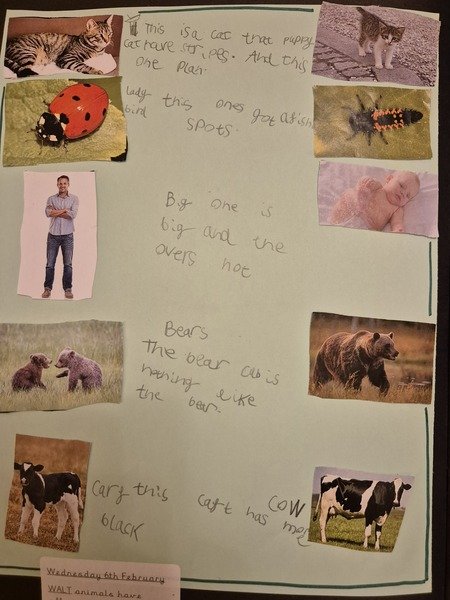 This is a cat that puppy
cat have stripes. And this
one plan.
Lady this ones got
bird spots.
Big one is
big and the
overs not
Bears
The bear cub is
nothing like
the bear.
Carf this caft has more
black
COW
Wednesday 6th February
WALT animals have